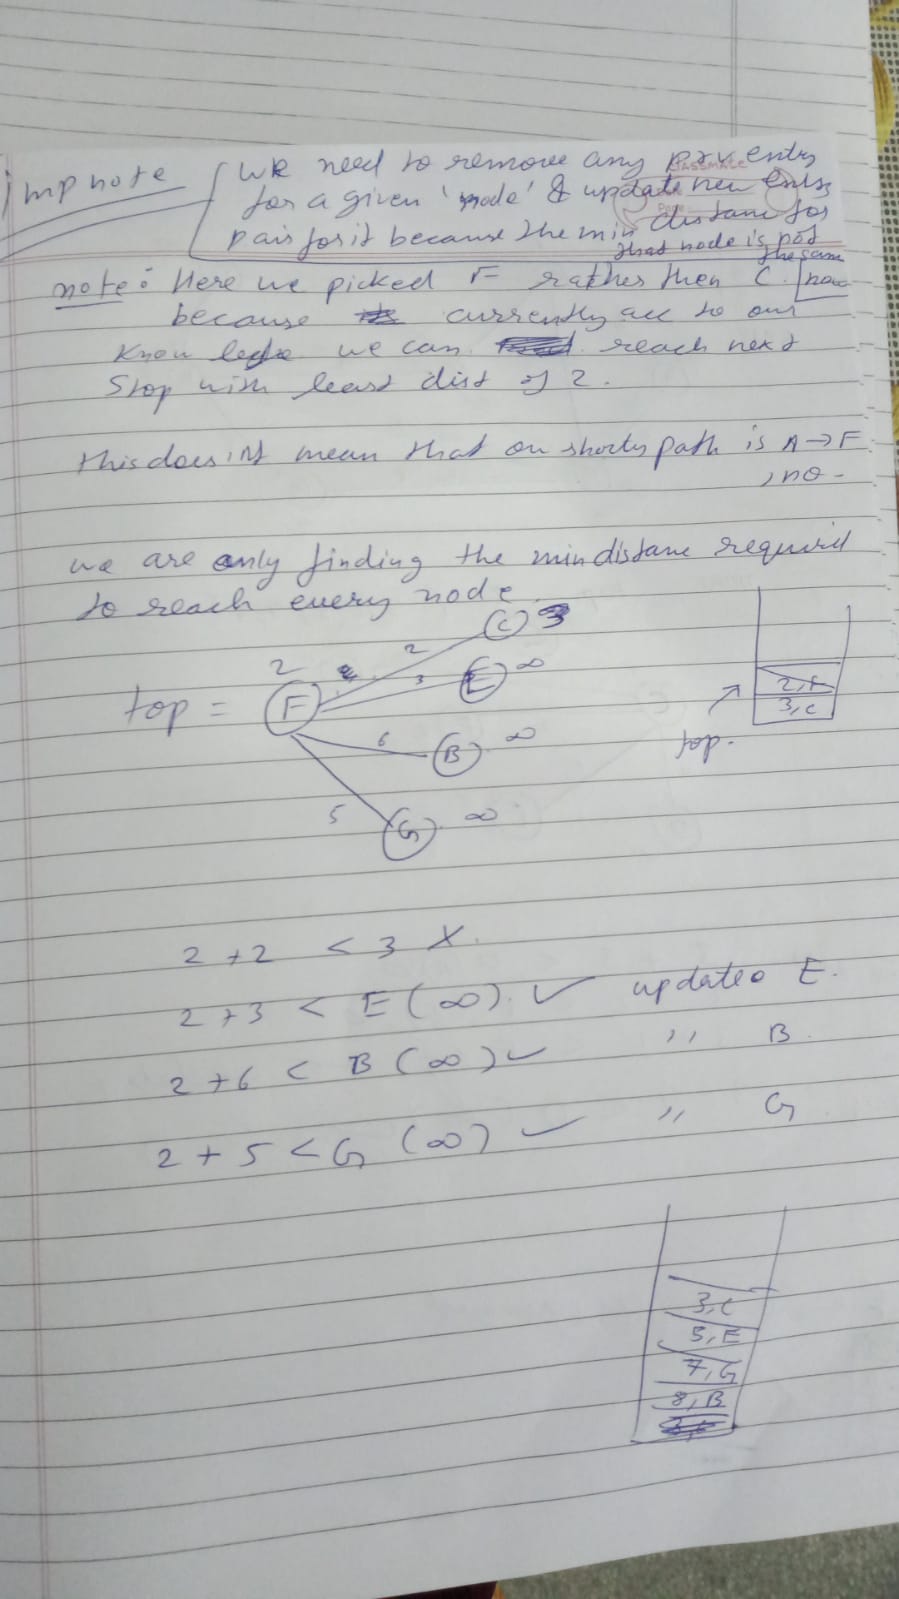 imp note
we need to remove any prev entry
for a given 'node' & update new entry
pair for it because the min distane for
that node is not
the same
now
CLASSMATE
note: Here we picked F rather then C.
because currently acc to our
know ledge we can reach next
Stop with least dist of 2.
this does'nt mean that our shortes path is A→F
, no -
we are only finding the min distane required
to reach every node.
C 3
2 2
3 E ∞
top = F
6 B ∞
5 G ∞
2,F
3,C
top.
2 +2 < 3 X.
2 +3 < E (∞). ✓ updateo E.
2 +6 < B (∞) ✓ ,, B.
2 + 5 < G (∞) ✓ ,, G
3,C
5,E
7,G
8,B